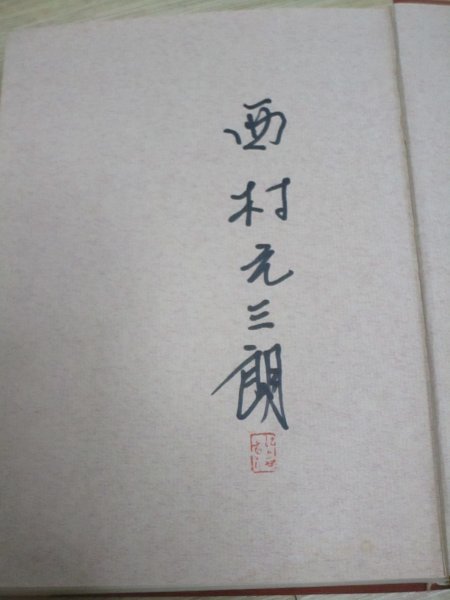 西村元三朗